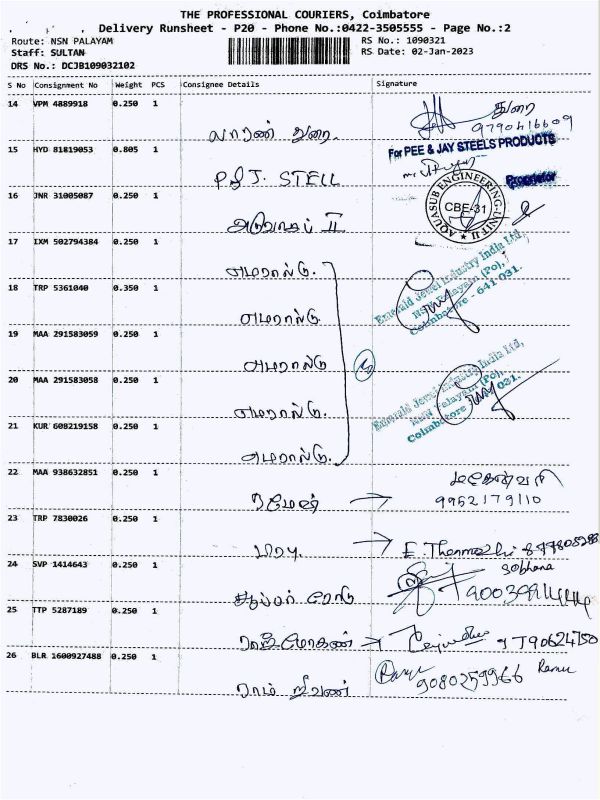 THE PROFESSIONAL COURIERS, Coimbatore
Delivery Runsheet - P20 - Phone No.:0422-3505555 - Page No.:2
Route: NSN PALAYAM RS No.: 1090321
Staff: SULTAN RS Date: 02-Jan-2023
DRS No.: DCJB109032102
S No Consignment No Weight PCS Consignee Details Signature
14 VPM 4889918 0.250 1 துரை
9790416609
துரை.
15 HYD 81819053 0.805 1 For PEE & JAY STEELS PRODUCTS
P & J. STELL Proprietor
16 JNR 31005087 0.250 1 AQUASUB ENGINEERING-UNIT II
CBE-31
II
17 IXM 502794384 0.250 1
எமரால்டு. Emerald Jewel Industry India Ltd,
18 TRP 5361040 0.350 1 NSN Palayam (Po),
Coimbatore - 641 031.
எமரால்டு
19 MAA 291583059 0.250 1
எமரால்டு Emerald Jewel Industry India Ltd,
20 MAA 291583058 0.250 1 NSN Palayam (Po),
எமரால்டு. Coimbatore 031.
21 KUR 608219158 0.250 1
எமரால்டு.
22 MAA 938632851 0.250 1 மகேஸ்வரி
ரமேஷ் 9952179110
23 TRP 7830026 0.250 1
பிரபு E. Thenmozhi
24 SVP 1414643 0.250 1 Sobhana
ரோடு
25 TTP 5287189 0.250 1
ராஜமோகன் 9790624750
26 BLR 1600927488 0.250 1 Ramu
ராம் நிவாஸ் 9080259966